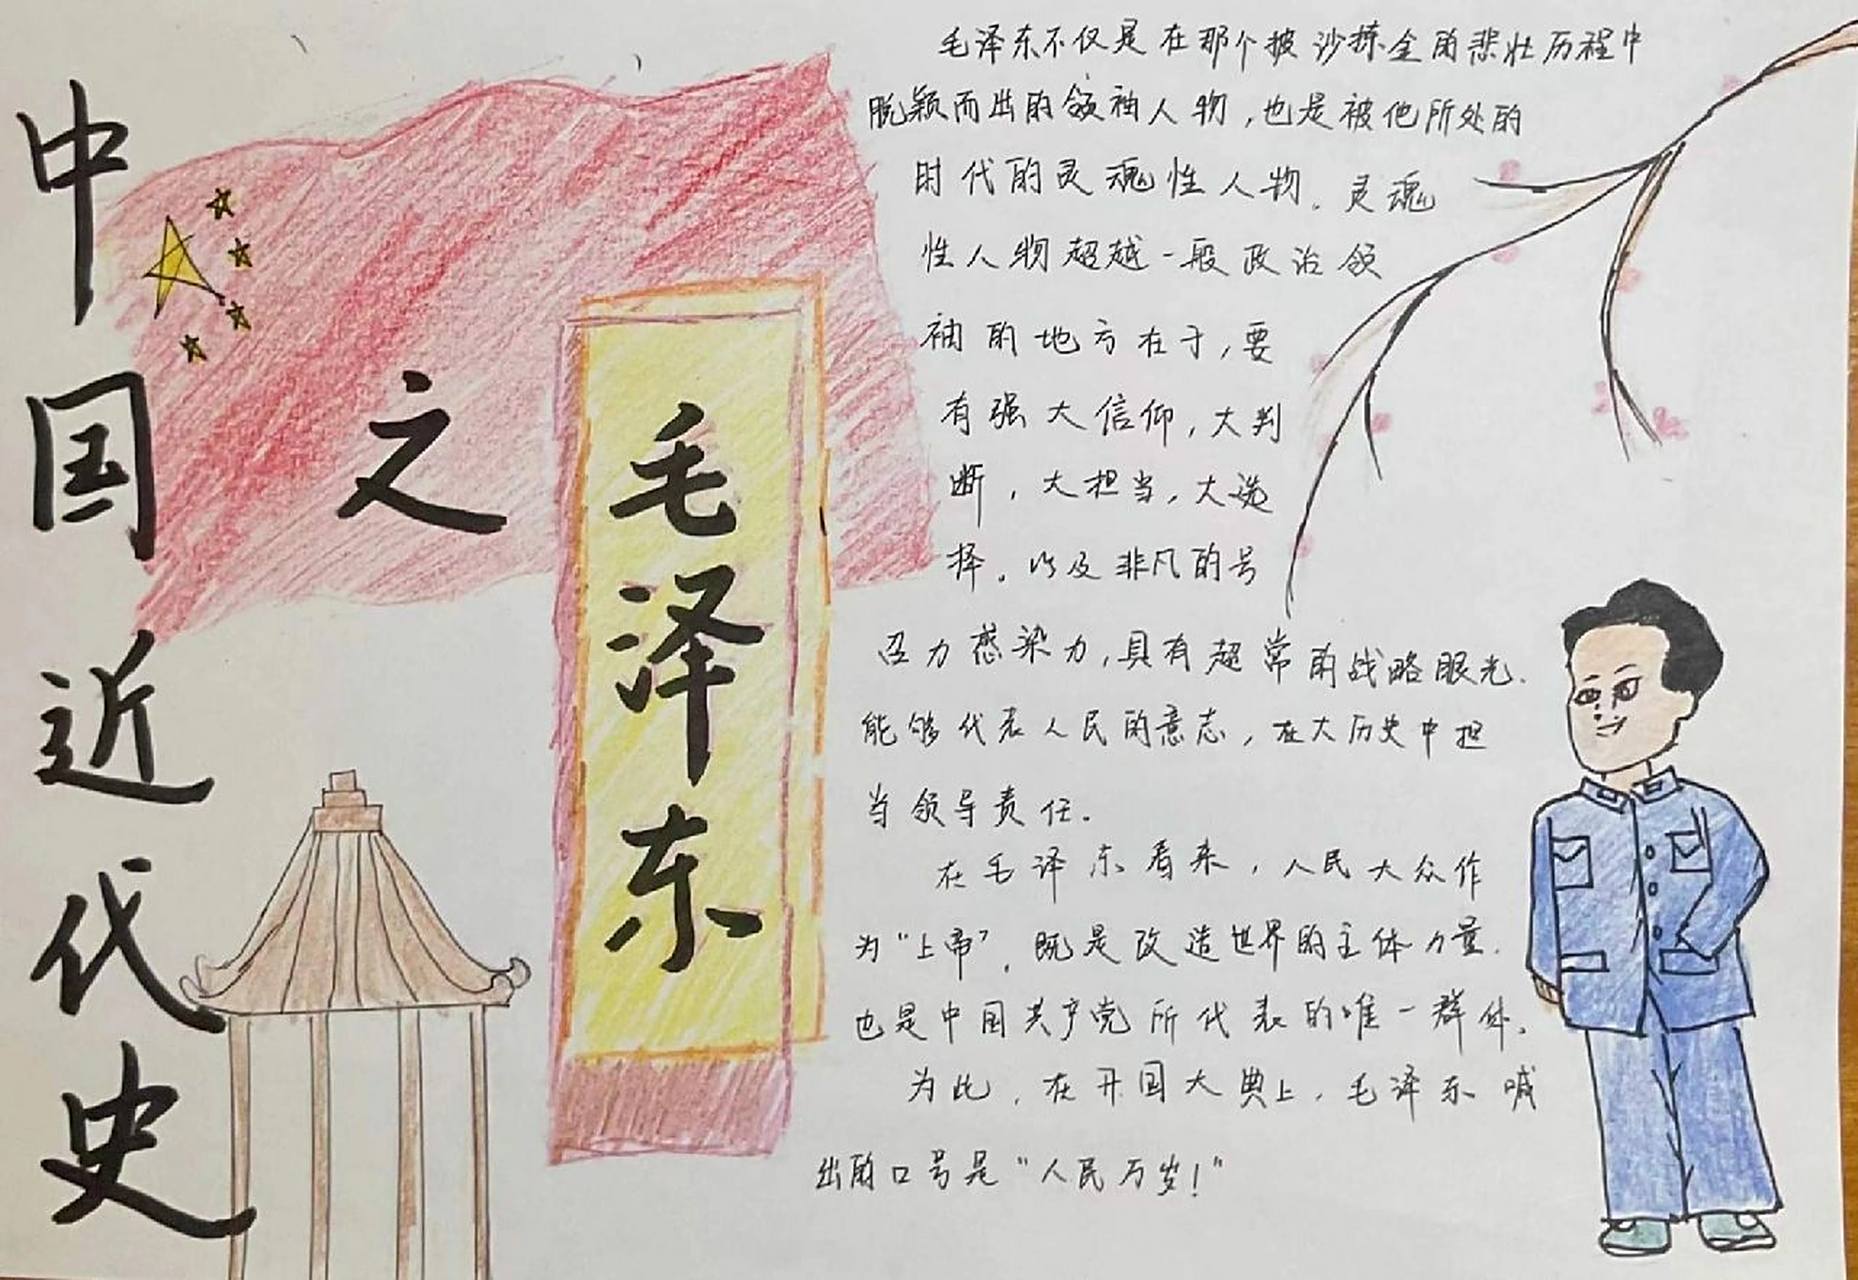 中国近代史
之
毛泽东
毛泽东不仅是在那个披沙拣金的悲壮历程中
脱颖而出的领袖人物，也是被他所处的
时代的灵魂性人物。灵魂
性人物超越一般政治领
袖的地方在于，要
有强大信仰，大判
断，大担当，大选
择。以及非凡的号
召力感染力，具有超常的战略眼光.
能够代表人民的意志，在大历史中担
当领导责任.
在毛泽东看来，人民大众作
为“上帝”，既是改造世界的主体力量.
也是中国共产党所代表的唯一群体。
为此，在开国大典上，毛泽东喊
出的口号是“人民万岁！”